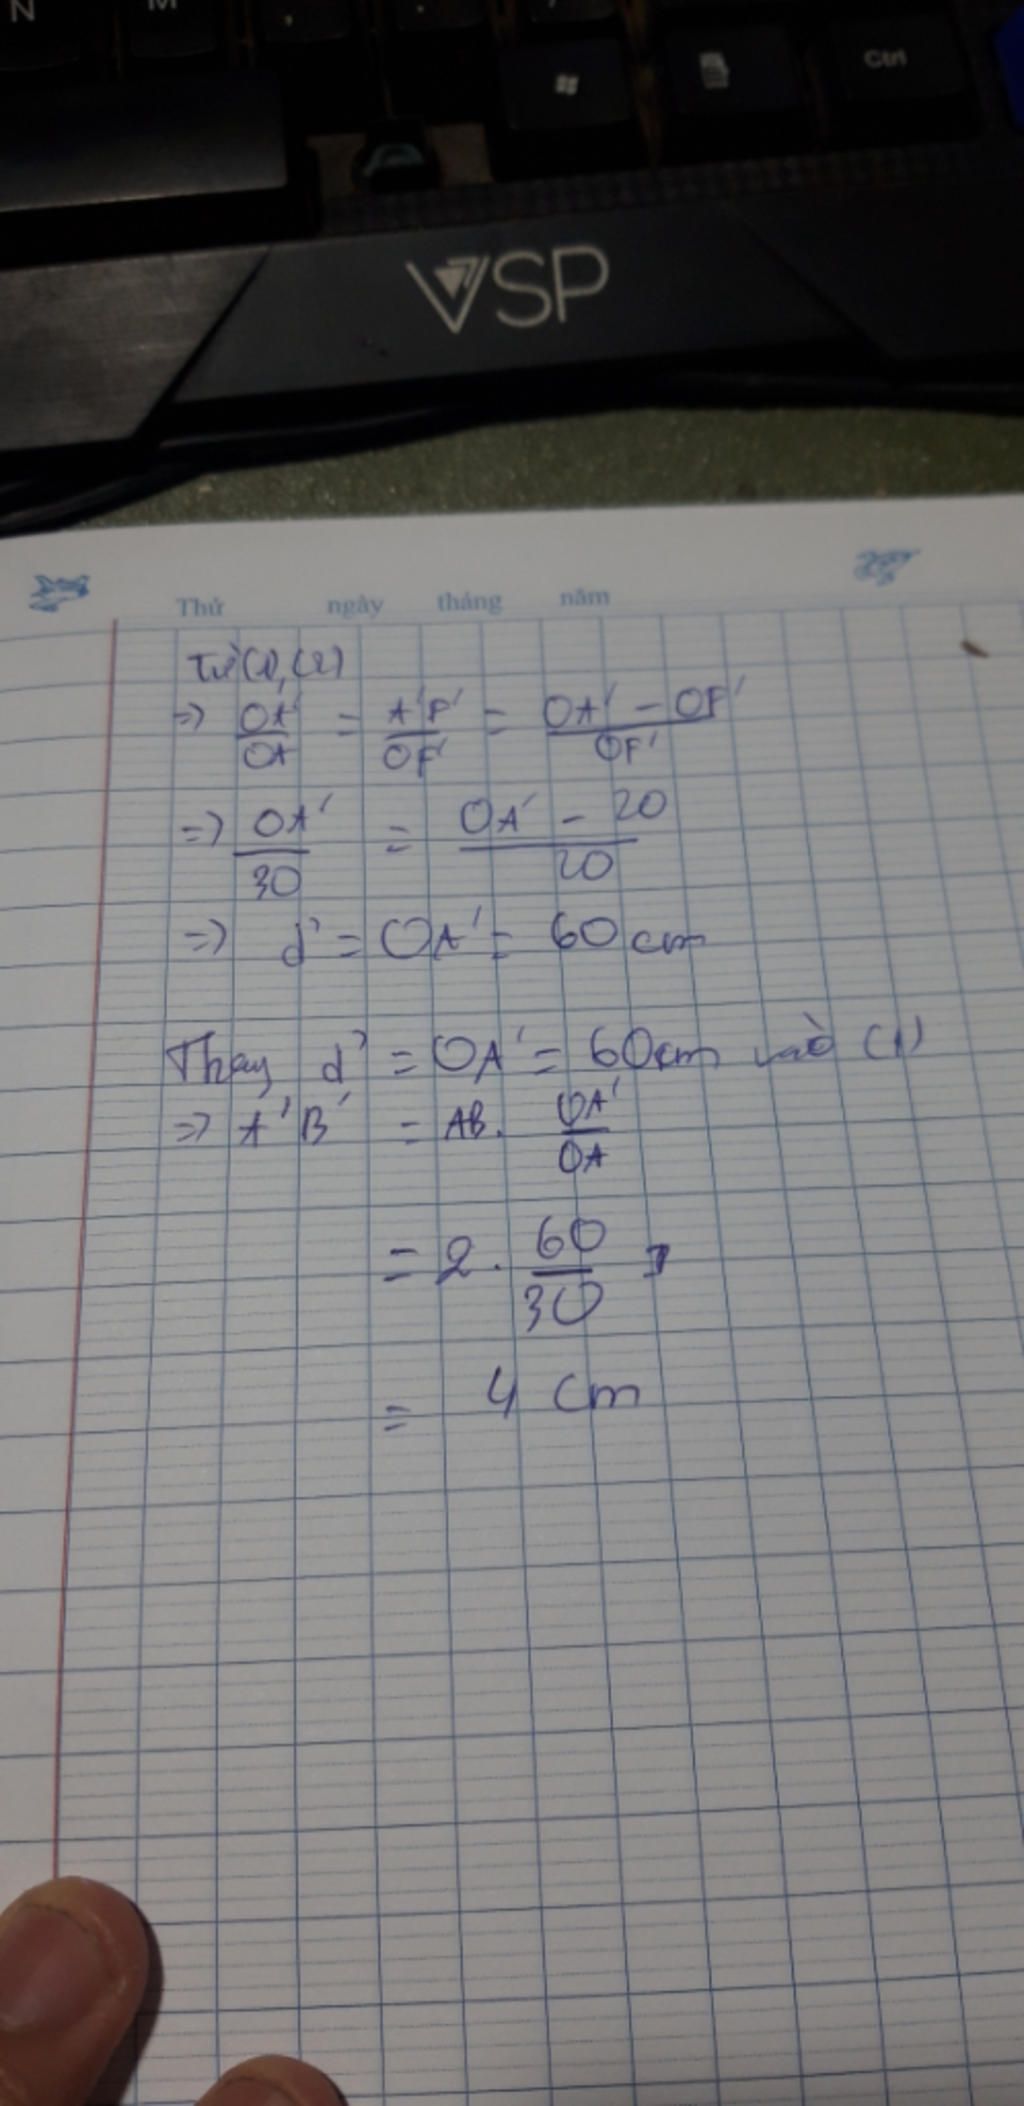 N M , . /
Ctrl
VSP
Thứ ngày tháng năm
Từ (1), (2)
=> OA'/OA = A'F'/OF' = OA' - OF'/OF'
=> OA'/30 = OA' - 20/20
=> d' = OA' = 60 cm
Thay d' = OA' = 60cm vào (1)
=> A'B' = AB. OA'/OA
= 2. 60/30
= 4 cm